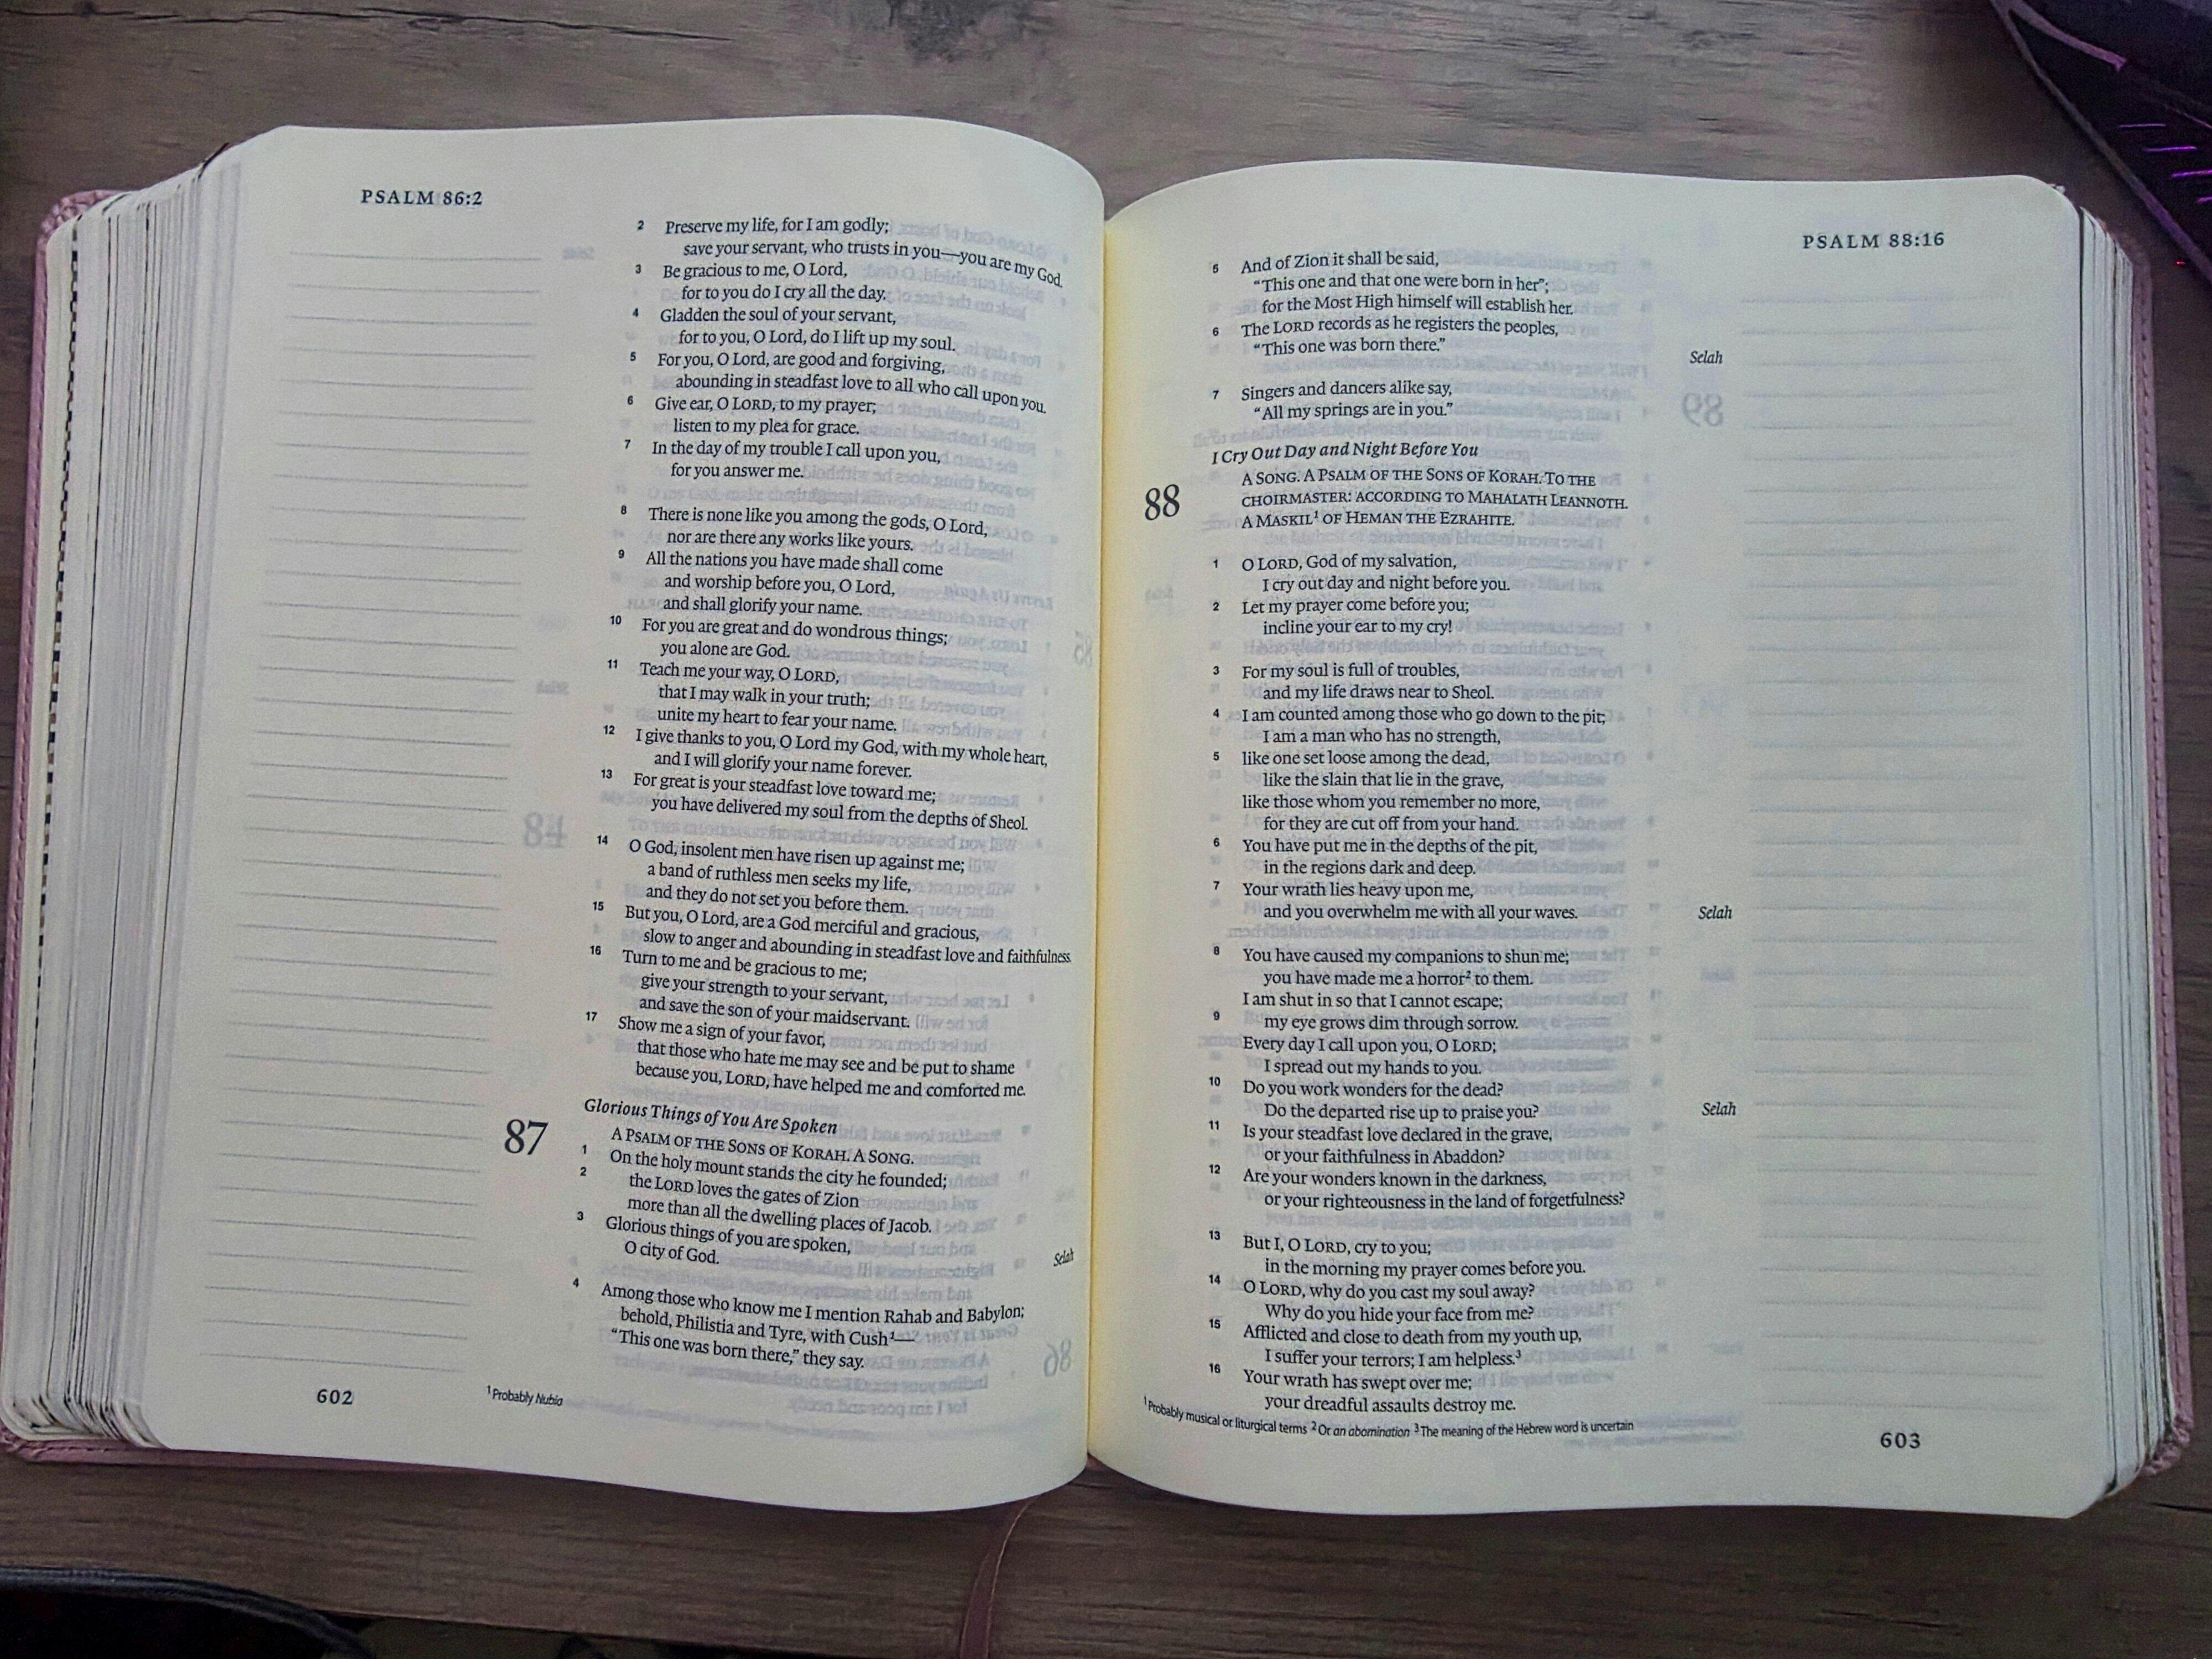 PSALM 86:2
2 Preserve my life, for I am godly;
save your servant, who trusts in you—you are my God.
3 Be gracious to me, O Lord,
for to you do I cry all the day.
4 Gladden the soul of your servant,
for to you, O Lord, do I lift up my soul.
5 For you, O Lord, are good and forgiving,
abounding in steadfast love to all who call upon you.
6 Give ear, O LORD, to my prayer;
listen to my plea for grace.
7 In the day of my trouble I call upon you,
for you answer me.
8 There is none like you among the gods, O Lord,
nor are there any works like yours.
9 All the nations you have made shall come
and worship before you, O Lord,
and shall glorify your name.
10 For you are great and do wondrous things;
you alone are God.
11 Teach me your way, O LORD,
that I may walk in your truth;
unite my heart to fear your name.
12 I give thanks to you, O Lord my God, with my whole heart,
and I will glorify your name forever.
13 For great is your steadfast love toward me;
you have delivered my soul from the depths of Sheol.
14 O God, insolent men have risen up against me;
a band of ruthless men seeks my life,
and they do not set you before them.
15 But you, O Lord, are a God merciful and gracious,
slow to anger and abounding in steadfast love and faithfulness.
16 Turn to me and be gracious to me;
give your strength to your servant,
and save the son of your maidservant.
17 Show me a sign of your favor,
that those who hate me may see and be put to shame
because you, LORD, have helped me and comforted me.
Glorious Things of You Are Spoken
87 A PSALM OF THE SONS OF KORAH. A SONG.
1 On the holy mount stands the city he founded;
2 the LORD loves the gates of Zion
more than all the dwelling places of Jacob.
3 Glorious things of you are spoken,
O city of God. Selah
4 Among those who know me I mention Rahab and Babylon;
behold, Philistia and Tyre, with Cush¹—
“This one was born there,” they say.
602
¹ Probably Nubia
PSALM 88:16
5 And of Zion it shall be said,
“This one and that one were born in her”;
for the Most High himself will establish her.
6 The LORD records as he registers the peoples,
“This one was born there.” Selah
7 Singers and dancers alike say,
“All my springs are in you.”
I Cry Out Day and Night Before You
88 A SONG. A PSALM OF THE SONS OF KORAH. TO THE
CHOIRMASTER: ACCORDING TO MAHALATH LEANNOTH.
A MASKIL¹ OF HEMAN THE EZRAHITE.
1 O LORD, God of my salvation,
I cry out day and night before you.
2 Let my prayer come before you;
incline your ear to my cry!
3 For my soul is full of troubles,
and my life draws near to Sheol.
4 I am counted among those who go down to the pit;
I am a man who has no strength,
5 like one set loose among the dead,
like the slain that lie in the grave,
like those whom you remember no more,
for they are cut off from your hand.
6 You have put me in the depths of the pit,
in the regions dark and deep.
7 Your wrath lies heavy upon me,
and you overwhelm me with all your waves. Selah
8 You have caused my companions to shun me;
you have made me a horror² to them.
I am shut in so that I cannot escape;
9 my eye grows dim through sorrow.
Every day I call upon you, O LORD;
I spread out my hands to you.
10 Do you work wonders for the dead?
Do the departed rise up to praise you? Selah
11 Is your steadfast love declared in the grave,
or your faithfulness in Abaddon?
12 Are your wonders known in the darkness,
or your righteousness in the land of forgetfulness?
13 But I, O LORD, cry to you;
in the morning my prayer comes before you.
14 O LORD, why do you cast my soul away?
Why do you hide your face from me?
15 Afflicted and close to death from my youth up,
I suffer your terrors; I am helpless.³
16 Your wrath has swept over me;
your dreadful assaults destroy me.
¹ Probably musical or liturgical terms ² Or an abomination ³ The meaning of the Hebrew word is uncertain
603